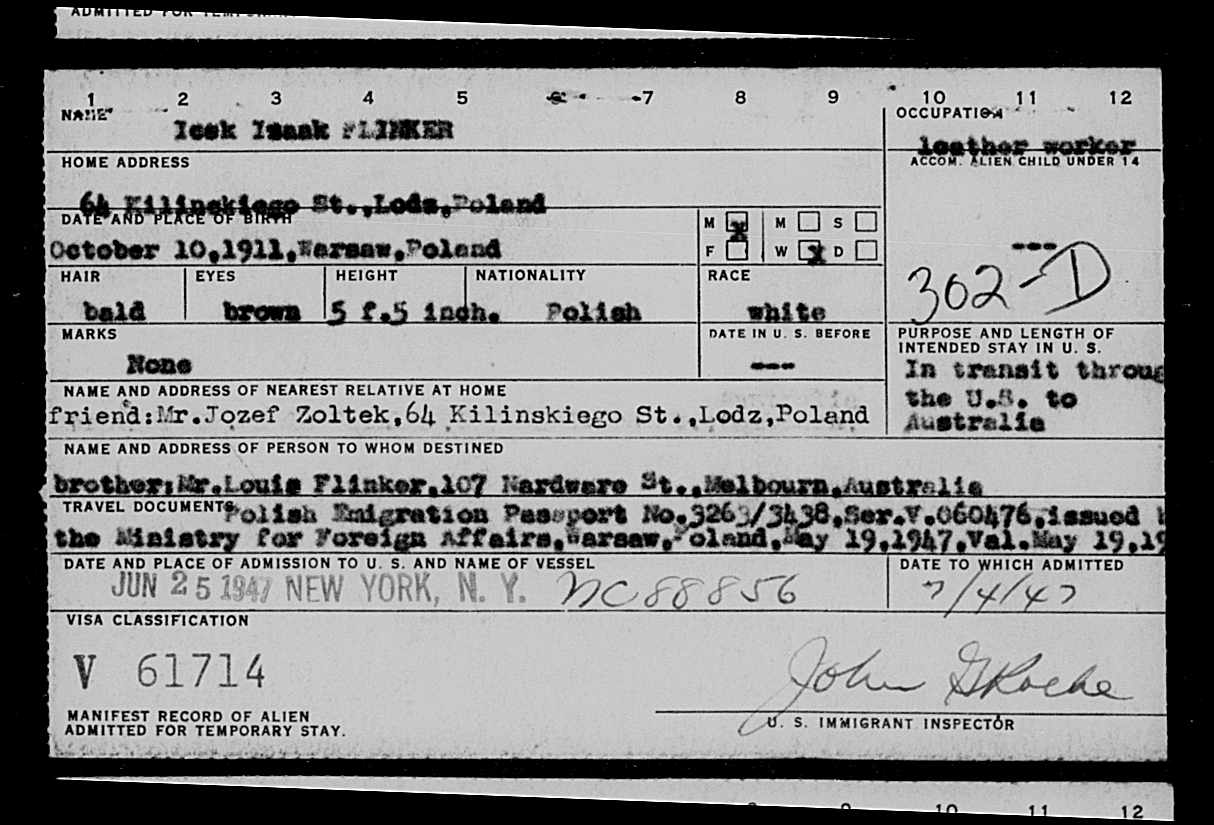 ADMITTED FOR TEMPORA
1 2 3 4 5 6 7 8 9 10 11 12
NAME
Icek Isaak FLINKER
OCCUPATION
leather worker
HOME ADDRESS
64 Kilinskiego St.,Lodz,Poland
ACCOM. ALIEN CHILD UNDER 14
---
302-D
DATE AND PLACE OF BIRTH
October 10,1911,Warsaw,Poland
M x M S
F W x D
HAIR EYES HEIGHT NATIONALITY RACE
bald brown 5 f.5 inch. Polish white
MARKS
None
DATE IN U. S. BEFORE
---
PURPOSE AND LENGTH OF
INTENDED STAY IN U. S.
In transit throug
the U.S. to
Australia
NAME AND ADDRESS OF NEAREST RELATIVE AT HOME
friend:Mr.Jozef Zoltek,64 Kilinskiego St.,Lodz,Poland
NAME AND ADDRESS OF PERSON TO WHOM DESTINED
brother:Mr.Louis Flinker,107 Hardware St.,Melbourn,Australia
TRAVEL DOCUMENTS
Polish Emigration Passport No.3263/3438,Ser.V.060476,issued b
the Ministry for Foreign Affairs,Warsaw,Poland,May 19,1947,Val.May 19,19
DATE AND PLACE OF ADMISSION TO U. S. AND NAME OF VESSEL
JUN 25 1947 NEW YORK, N. Y. NC 88856
DATE TO WHICH ADMITTED
7/4/47
VISA CLASSIFICATION
V 61714
MANIFEST RECORD OF ALIEN
ADMITTED FOR TEMPORARY STAY.
John G Roche
U. S. IMMIGRANT INSPECTOR
8 9 10 11 12